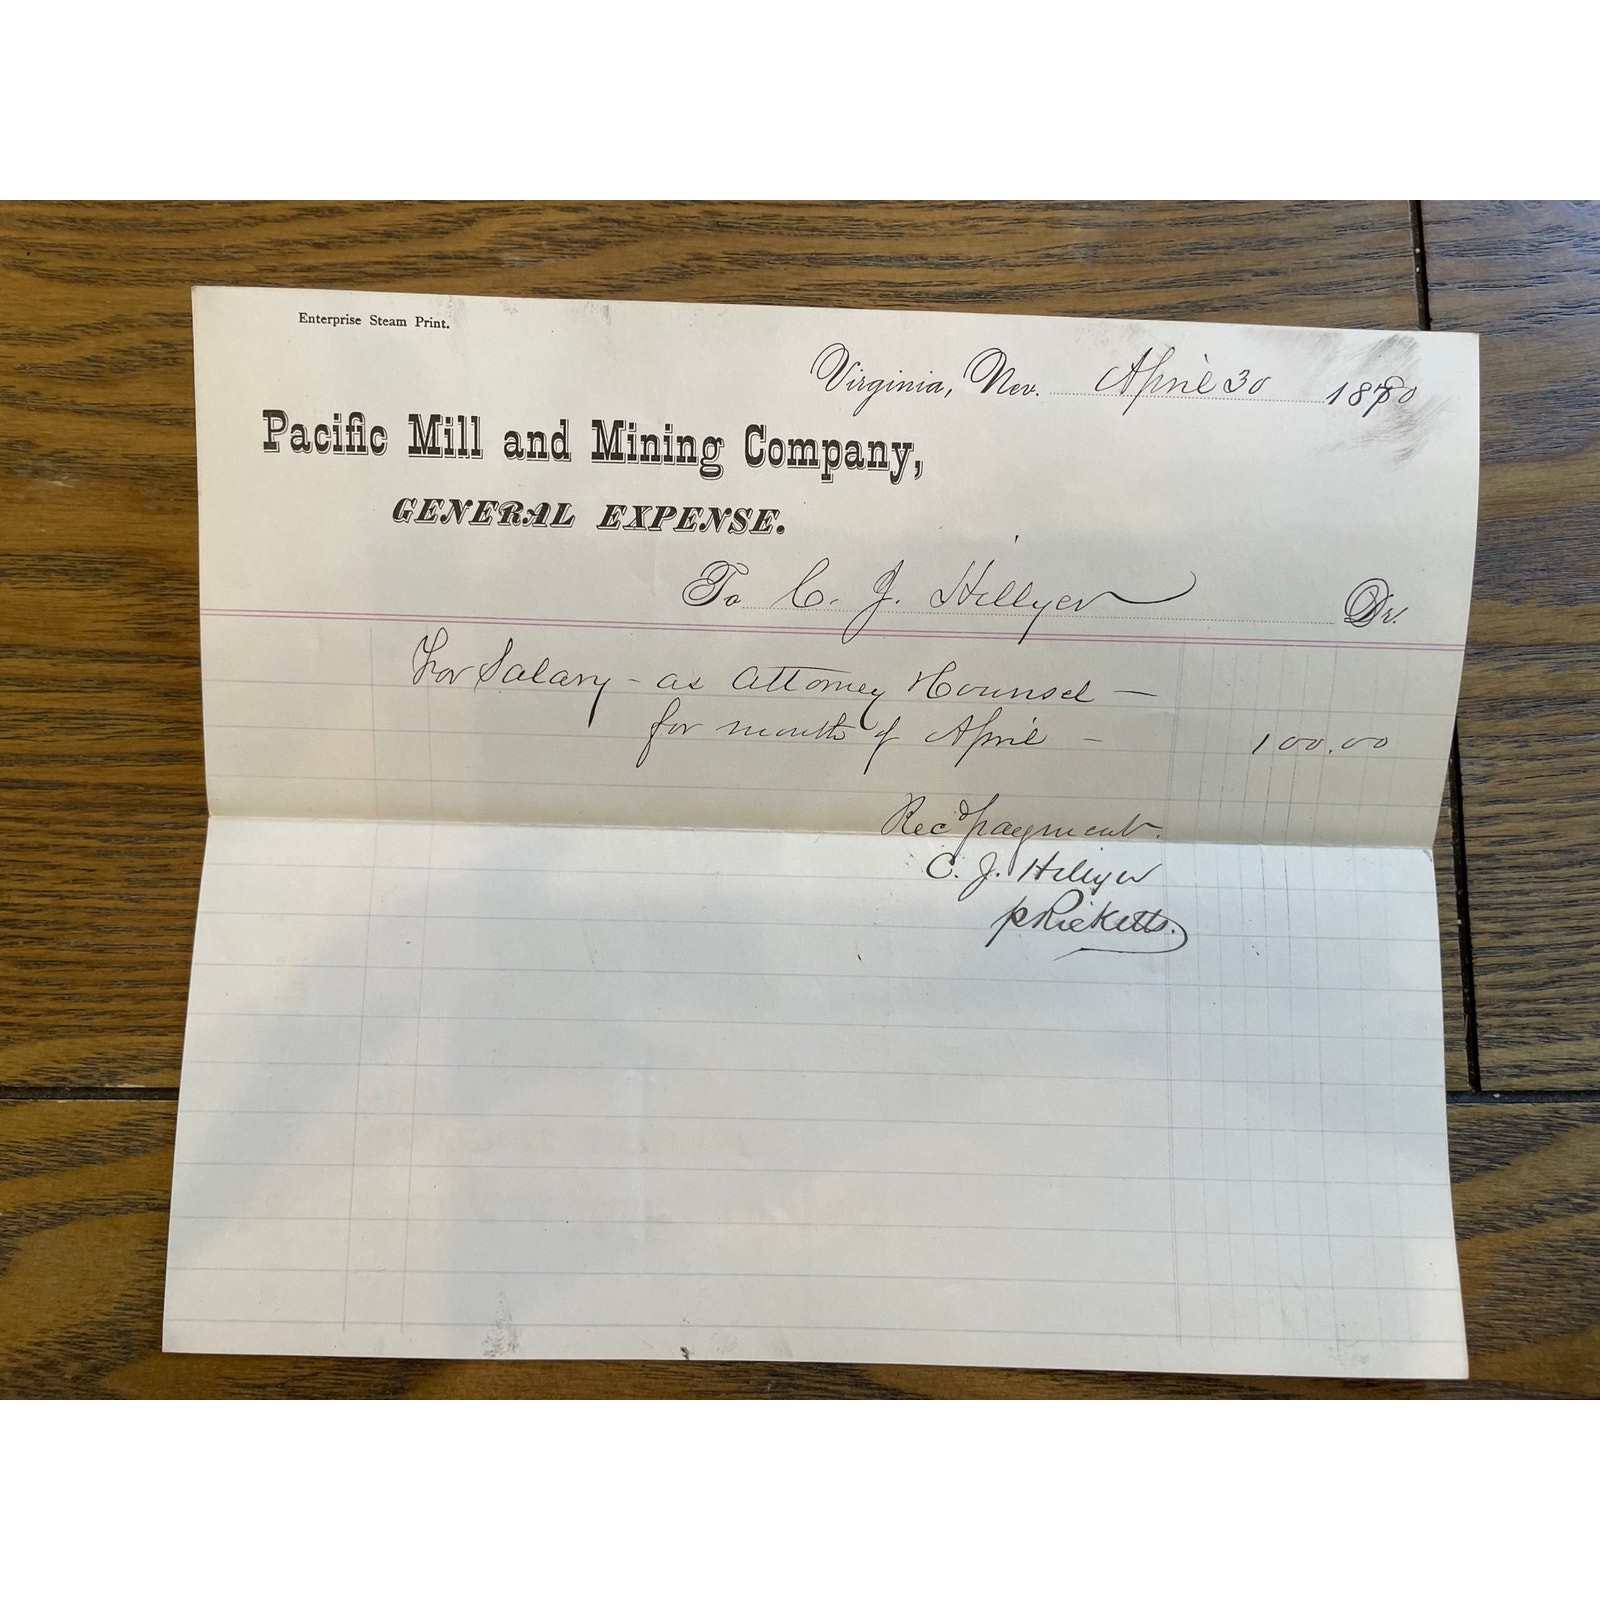 Enterprise Steam Print.
Virginia, Nev. April 30 1880
Pacific Mill and Mining Company,
GENERAL EXPENSE.
To C. J. Hillyer Dr.
For Salary - as Attorney & Counsel —
for month of April - 100.00
Recd payment.
C. J. Hillyer
p Ricketts.